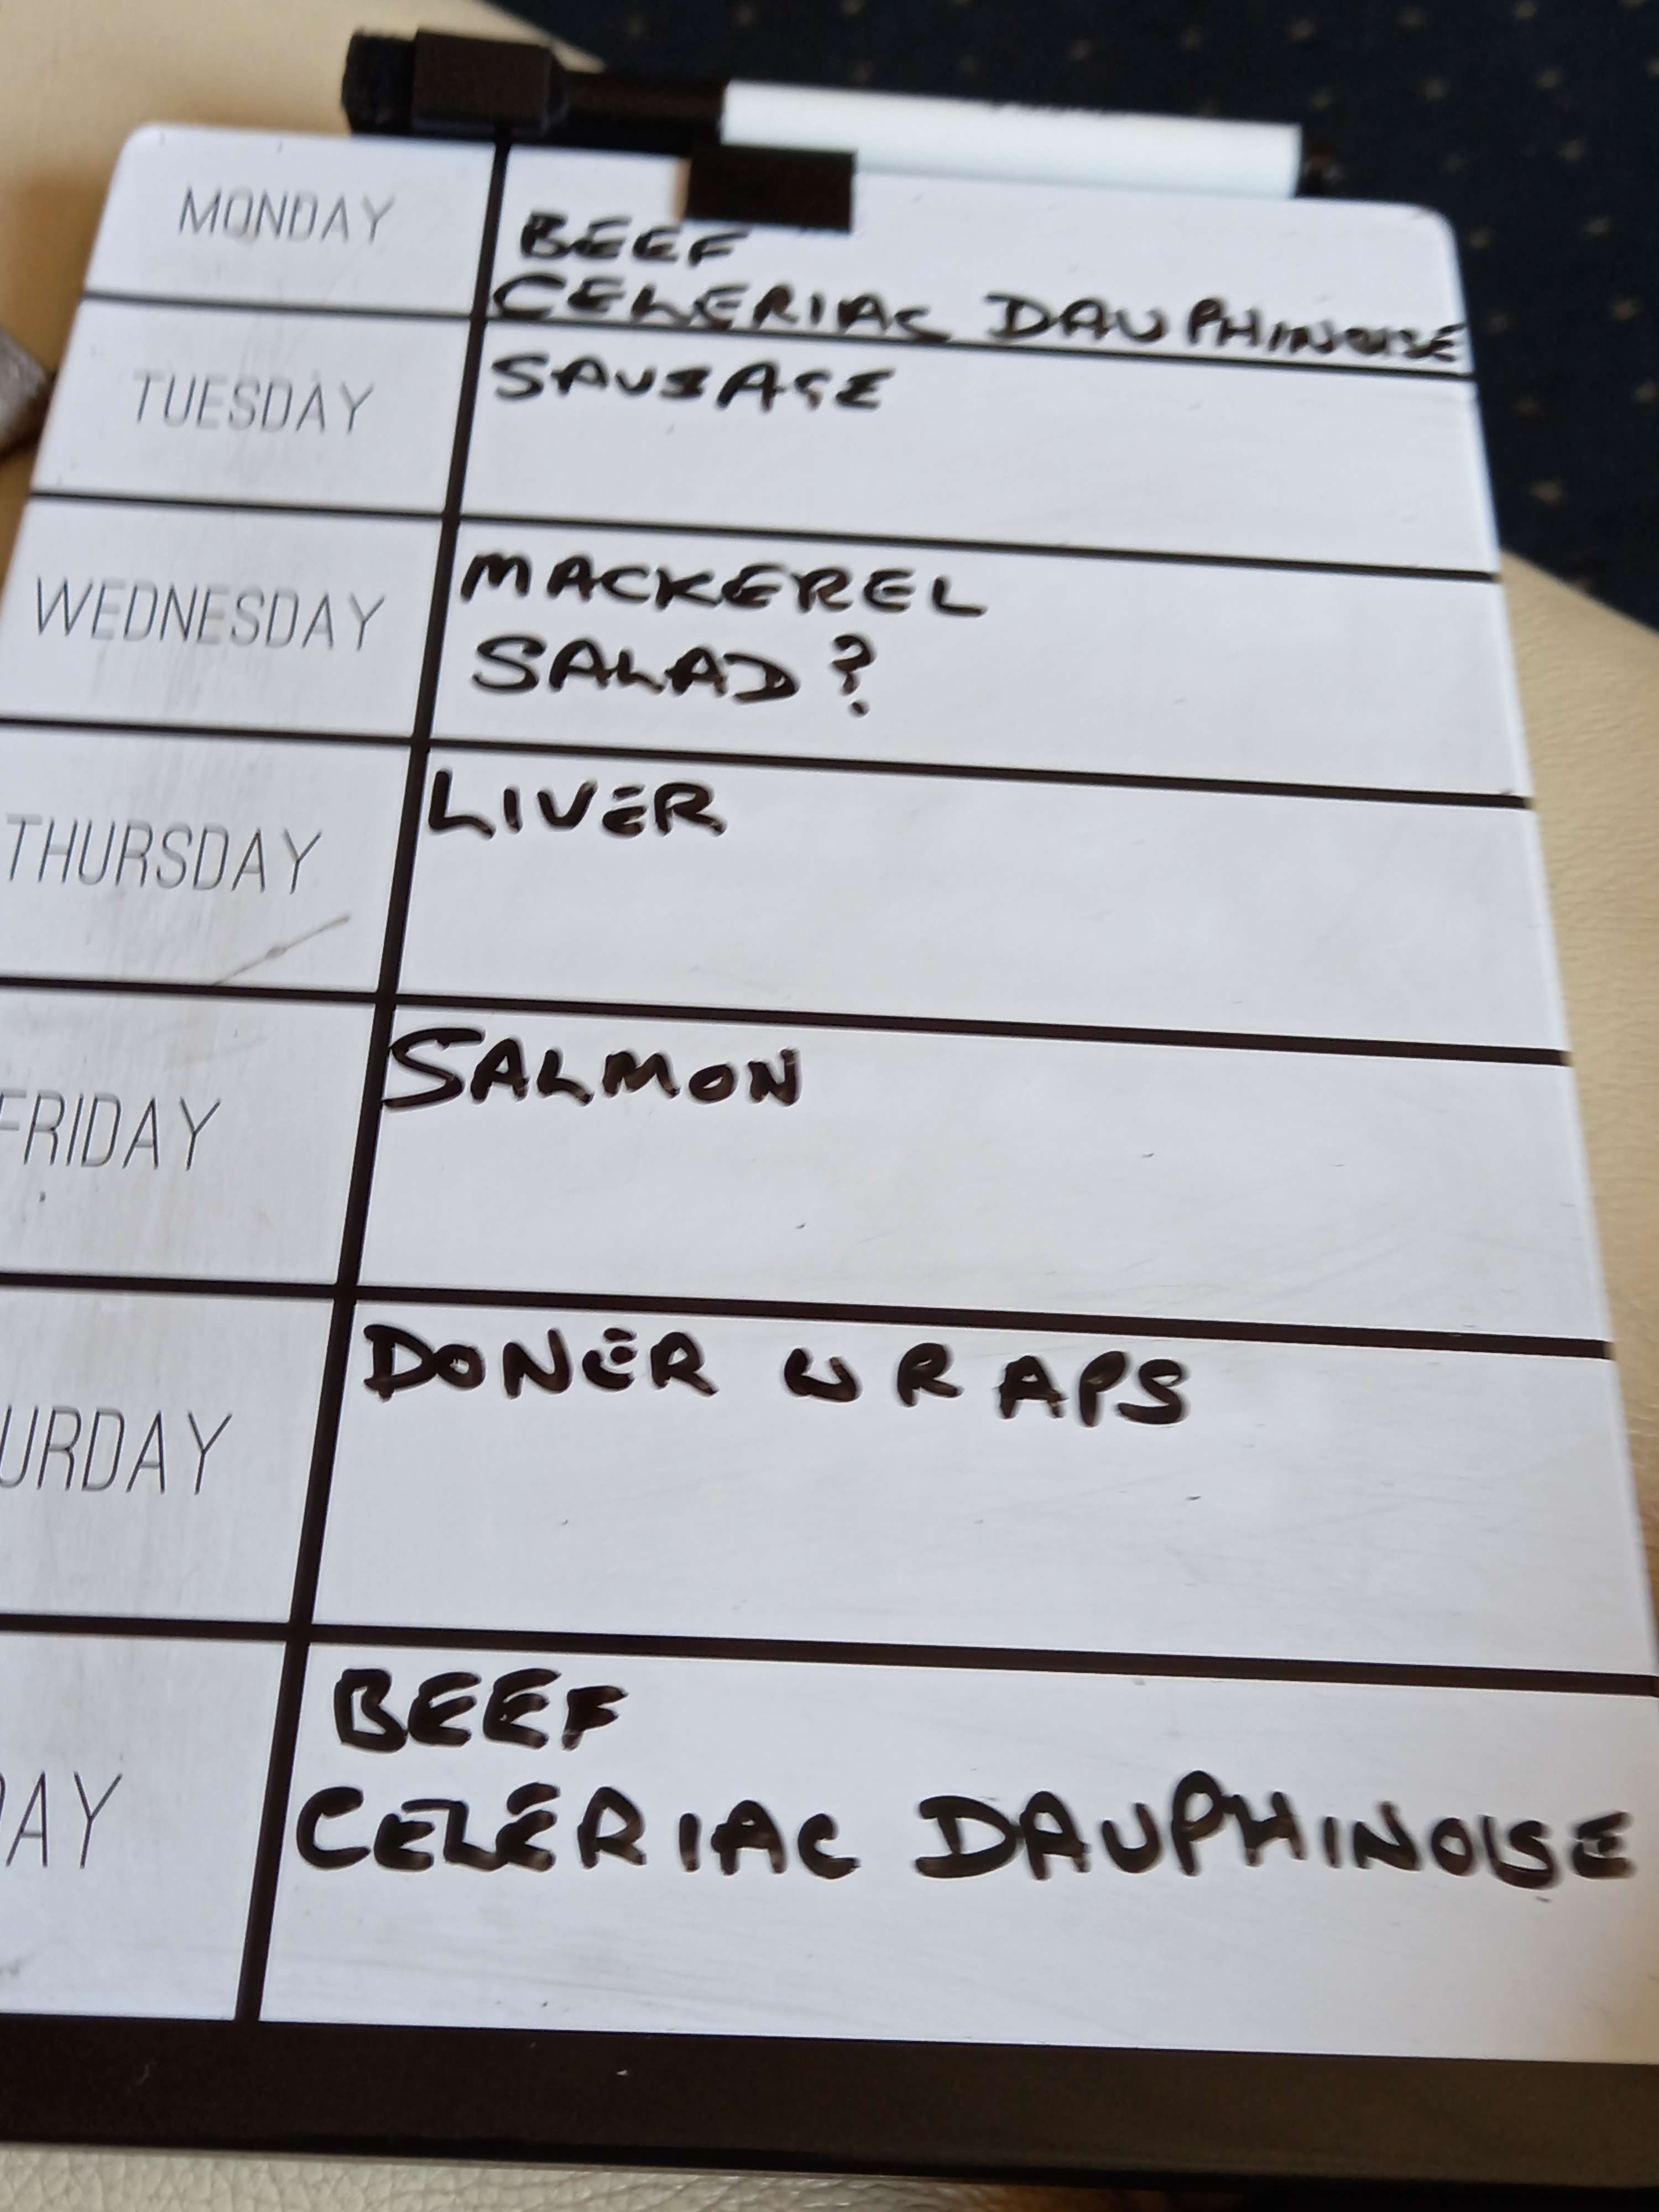 MONDAY
BEEF
CELERIAC DAUPHINOISE
TUESDAY
SAUSAGE
WEDNESDAY
MACKEREL
SALAD?
THURSDAY
LIVER
FRIDAY
SALMON
URDAY
DONER WRAPS
DAY
BEEF
CELERIAC DAUPHINOISE